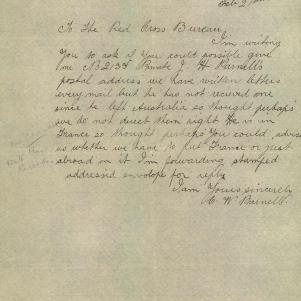 Feb 21st
To The Red Cross Bureau,
I'm writing
you to ask if you could possible give
me No 2154 Private J. H. Parnell's
postal address we have written letters
every mail but he has not received one
since he left Australia so thought perhaps
we do not direct them right He is in
France so thought perhaps you could advise
us whether we have to put France or just
abroad on it I'm forwarding stamped
address'd envolope for reply
I am Yours sincerely
W Parnell